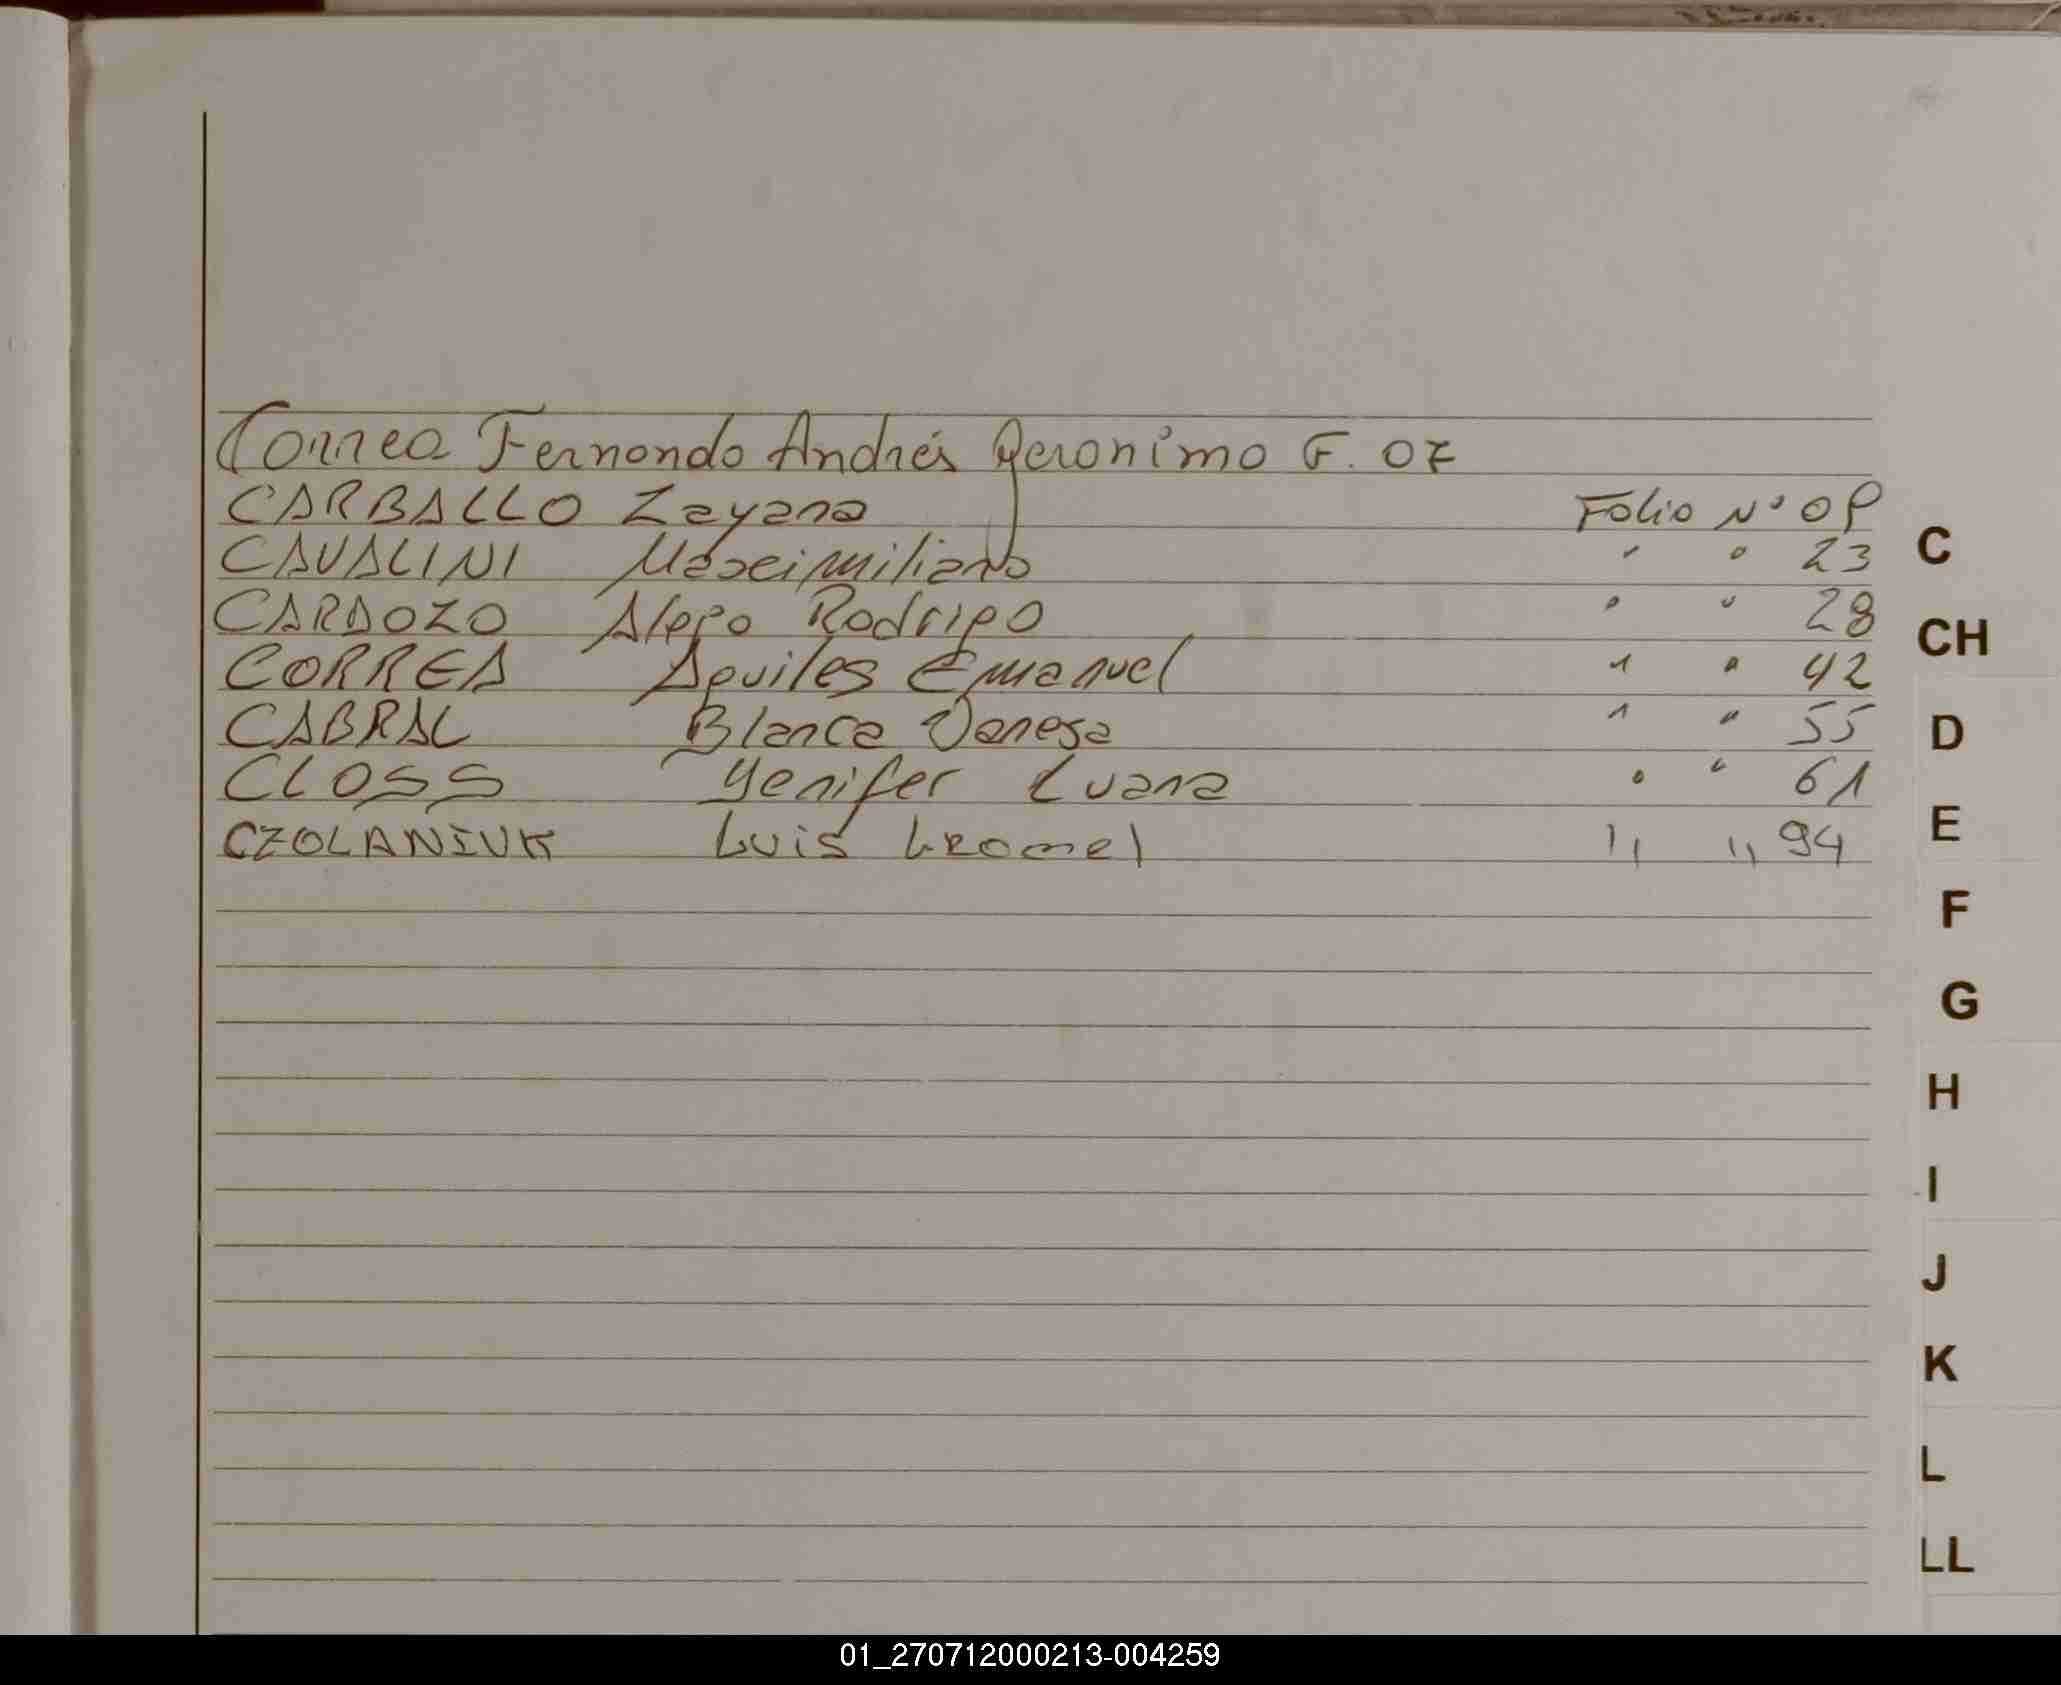 Correa Fernando Andrés Geronimo F. 07
CARBALLO Zayana Folio Nº 09
CAVALINI Maximiliano " " 23
CARDOZO Alejo Rodrigo " " 28
CORREA Aquiles Emanuel " " 42
CABRAL Blanca Vanesa " " 55
CLOSS Yenifer Luana " " 61
CZOLANIUK Luis Leonel " " 94
C
CH
D
E
F
G
H
I
J
K
L
LL
01_270712000213-004259